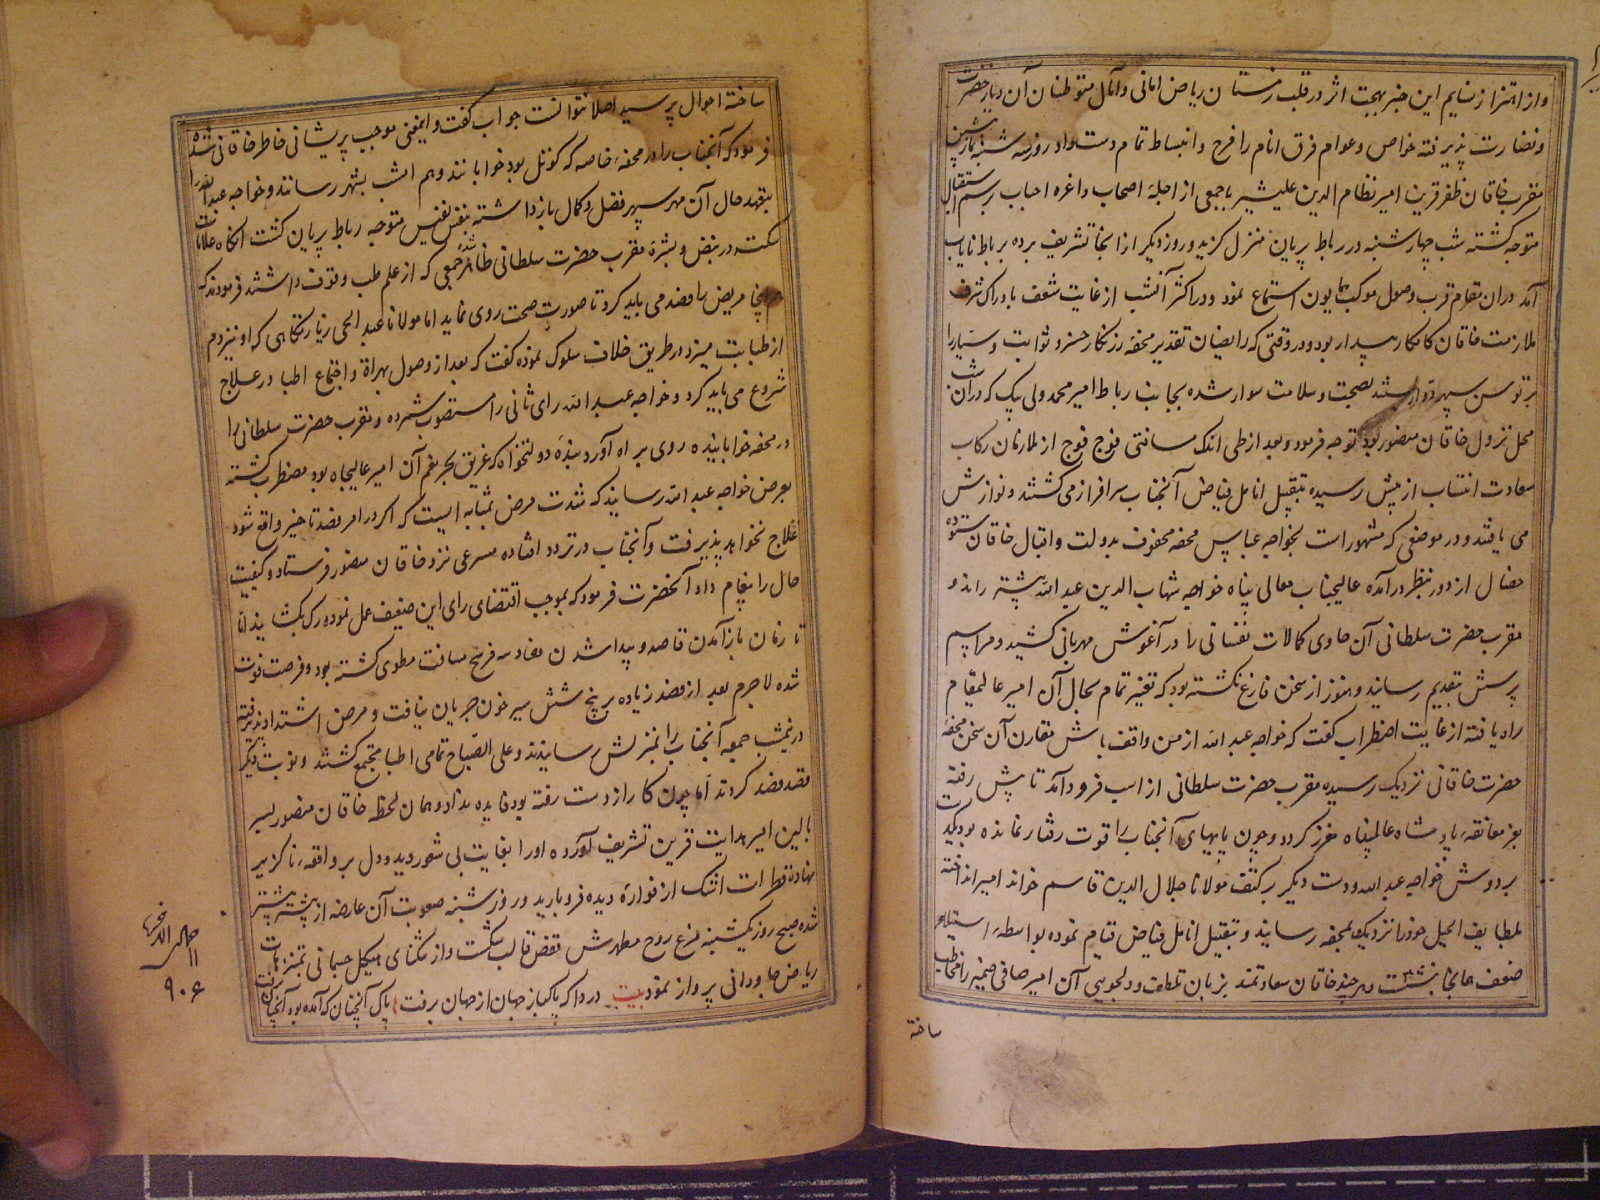 و از اهتزاز نسایم این خبر بهجت اثر در قلب زمستان ریاض امانی و آمال متوطنان آن دیار خضرت
و نضارت پذیرفته خواص و عوام فرق انام را فرح و انبساط تمام دست داد و روز سه شنبه نماز پیشین
مقرب خاقان ظفر قرین امیر نظام الدین علیشیر با جمعی از اجله اصحاب و اعزه احباب برسم استقبال
متوجه گشته شب چهارشنبه در رباط پریان منزل گزید و روز دیگر از آنجا تشریف برده بر باط تایاب
آمد و در ان مقام قرب وصول موکب همایون استماع نمود و در اکثر آنشب از غایت شعف بادراک شرف
ملازمت خاقان کامکار بیدار بود و در وقتی که رایضان تقدیر محفه زرنگار خسرو ثوابت و سیار را
بر توسن سپهر دوار بستند بصحت و سلامت سوار شده بجانب رباط امیر محمد ولی بیک که در آن شب
محل نزول خاقان منصور بود توجه فرمود و بعد از طی اندک مسافتی فوج فوج از ملازمان رکاب
سعادت انتساب از پیش رسیده بتقبیل انامل فیاض آنجناب سرافراز می گشتند و نوازش
می یافتند و در موضعی که مشهور است بخواجه عباس محفه محفوف بدولت و اقبال خاقان ستوده
خصال از دور بنظر درآمده عالیجناب معالی پناه خواجه شهاب الدین عبد الله پیشتر راند و
مقرب حضرت سلطانی آن حاوی کمالات نفسانی را در آغوش مهربانی کشید و مراسم
پرسش بتقدیم رسانید و هنوز از سخن فارغ نگشته بود که تغیر تمام بحال آن امیر عالیمقام
راه یافته از غایت اضطراب گفت که خواجه عبد الله از من واقف باش مقارن آن سخن محفه
حضرت خاقانی نزدیک رسیده مقرب حضرت سلطانی از اسب فرود آمد تا پیش رفته
بعز معانقه پادشاه عالمپناه معزز گردد و چون پایهای آنجناب را قوت رفتار نمانده بود یکدست
بر دوش خواجه عبد الله و دست دیگر بر کتف مولانا جلال الدین قاسم خواند امیر انداخته
بلطایف الحیل خود را نزدیک بمحفه رسانید و بتقبیل انامل فیاض قیام نموده بواسطه استیلاء
ضعف همانجا بنشست و هر چند خاقان سعادتمند بزبان تلطف و دلجویی آن امیر صافی ضمیر را مخاطب
ساخته
ساخته احوال پرسید اصلا نتوانست جواب گفت و اینمعنی موجب پریشانی خاطر خاقانی شده
فرمود که آنجناب را در محفه خاصه که کوتل بود خوابانند و هم امشب بشهر رسانند و خواجه عبد الله را
بتعهد حال آن مهر سپهر فضل و کمال بازداشته بنفس نفیس متوجه رباط پریان گشت آنگاه علامات
سکته در نبض و بشره مقرب حضرت سلطانی ظاهر شده جمعی که از علم طب وقوف داشتند فرمودند که
همینجا مریض را فصد می باید کرد تا صورت صحت روی نماید اما مولانا عبد الحی زیارتگاهی که او نیز دم
از طبابت میزد در طریق خلاف سلوک نموده گفت که بعد از وصول بهراة و اجتماع اطبا در علاج
شروع می باید کرد و خواجه عبد الله رای ثانی را مستصوب شمرده و مقرب حضرت سلطانی را
در محفه خوابانیده روی براه آورد بنده دولتخواه که غریق بحر نعم آن امیر عالیجاه بود مضطرب گشته
بعرض خواجه عبد الله رسانید که شدت مرض بمثابه ایست که اگر در امر فصد تاخیر واقع شود
علاج نخواهد پذیرفت و آنجناب در تردد افتاده مسرعی نزد خاقان منصور فرستاد و کیفیت
حال را پیغام داد آنحضرت فرمود که بموجب اقتضای رای این ضعیف عمل نموده رک بکشایند اما
تا زمان باز آمدن قاصد و پیدا شدن فصاد سه فرسخ مسافت مطوی گشته بود و فرصت فوت
شده لا جرم بعد از فصد زیاده بر پنج شش سیر خون جریان نیافت و مرض اشتداد پذیرفته
در نیمشب جمعه آنجناب را بمنزلش رسانیدند و علی الصباح تمامی اطبا مجتمع گشتند و نوبت دیگر
قصد فصد کردند اما چون کار از دست رفته بود فایده نداد و همان لحظه خاقان منصور بسر
بالین امیر هدایت قرین تشریف آورده او را بغایت بی شعور دید و دل بر واقعه ناگزیر
نهاده قطرات اشک از فواره دیده فرو بارید و روز شنبه صعوبت آن عارضه از پیشتر بیشتر
شده صبح روز یکشنبه مرغ روح مطهرش قفص قالب بشکست و از تنگنای هیکل جسمانی بمتنزهات
ریاض جاودانی پرواز نمود بیت دردا که پاکباز جهان از جهان برفت پاک آنچنان که آمده بود آنچنان برفت
۱۱
۹۰۶